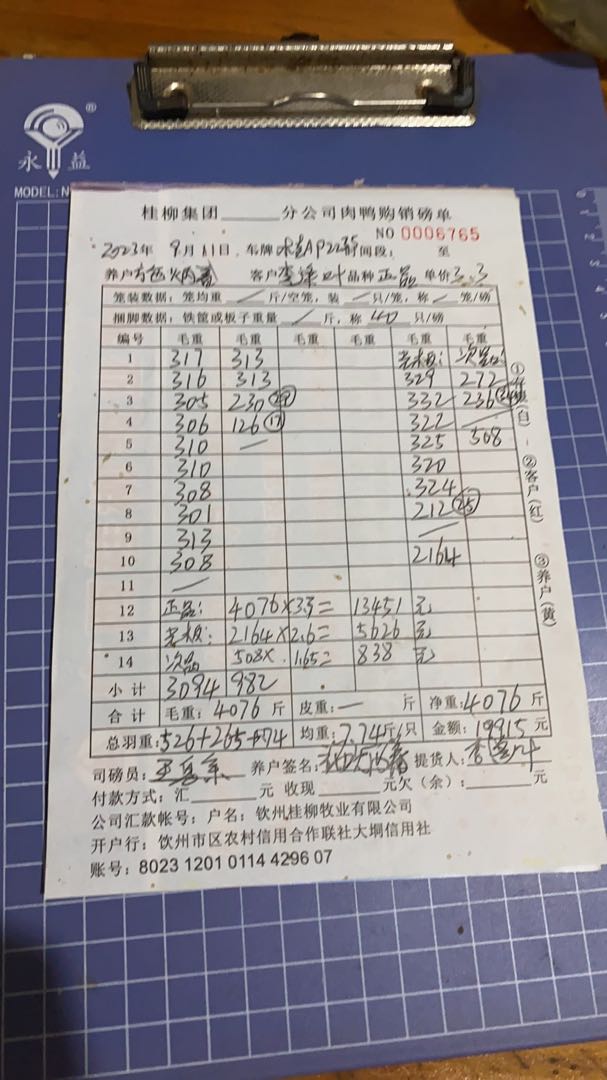 永益®
MODEL:N
桂柳集团______分公司肉鸭购销磅单
NO 0006765
2023年 9月11日 车牌 间段: 至
养户 客户 品种 正品 单价 3.3
笼装数据:笼均重 / 斤/空笼,装 / 只/笼,称 / 笼/磅
捆脚数据:铁篚或板子重量 / 斤,称 40 只/磅
编号 毛重 毛重 毛重 毛重 毛重 毛重
1 317 313 老板: 次品:
2 316 313 329 272
3 305 230 332 236
4 306 126 (17) 322 /
5 310 / 325 508
6 310 320
7 308 324
8 301 212 (25)
9 313 /
10 308 2164
11 /
12 正品: 4076×3.3= 13451元
13 老板: 2164×2.6= 5626元
14 次品 508× 1.65= 838元
小计 3094 982
合计 毛重:4076斤 皮重:— 斤 净重:4076斤
总羽重:526+265+74 均重:7.74斤/只 金额:19915元
司磅员: 养户签名: 提货人:
付款方式:汇______元 收现______元欠(余):______元
公司汇款帐号:户名:钦州桂柳牧业有限公司
开户行:钦州市区农村信用合作联社大垌信用社
账号:8023 1201 0114 4296 07
①存根(白)
②客户(红)
③养户(黄)